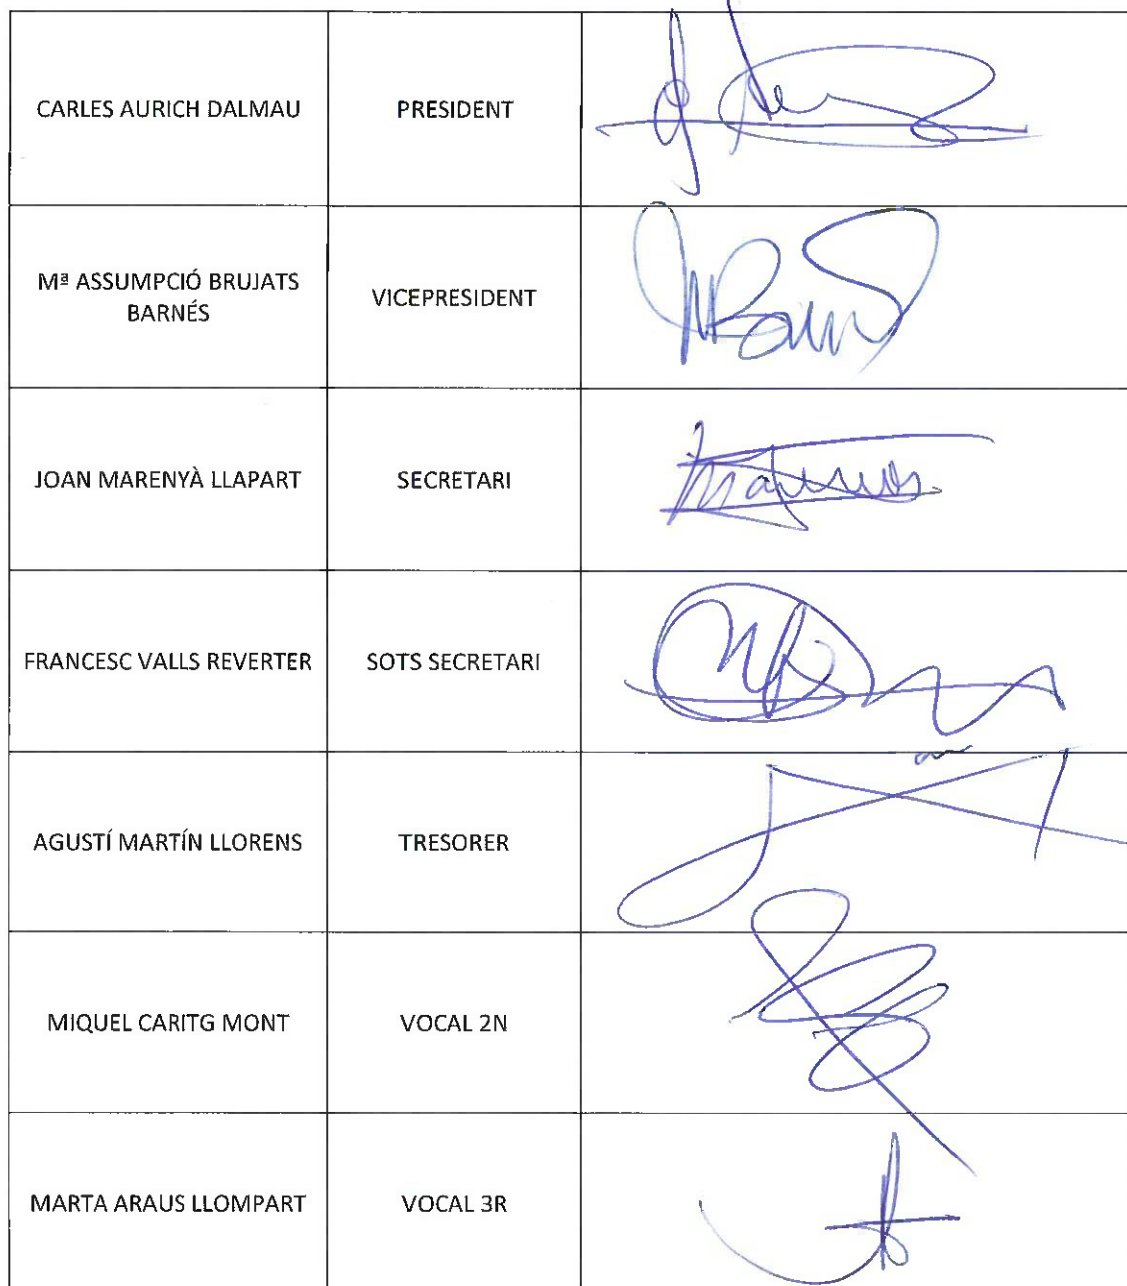 CARLES AURICH DALMAU PRESIDENT
Mª ASSUMPCIÓ BRUJATS
BARNÉS
VICEPRESIDENT
JOAN MARENYÀ LLAPART SECRETARI
FRANCESC VALLS REVERTER SOTS SECRETARI
AGUSTÍ MARTÍN LLORENS TRESORER
MIQUEL CARITG MONT VOCAL 2N
MARTA ARAUS LLOMPART VOCAL 3R